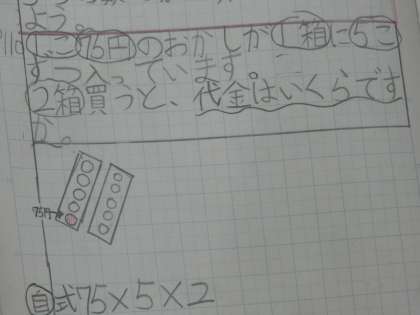 よう。
P110 1こ75円のおかしが1箱に5こ
ずつ入っています。
2箱買うと、代金はいくらです
か。
75円
自 式75×5×2